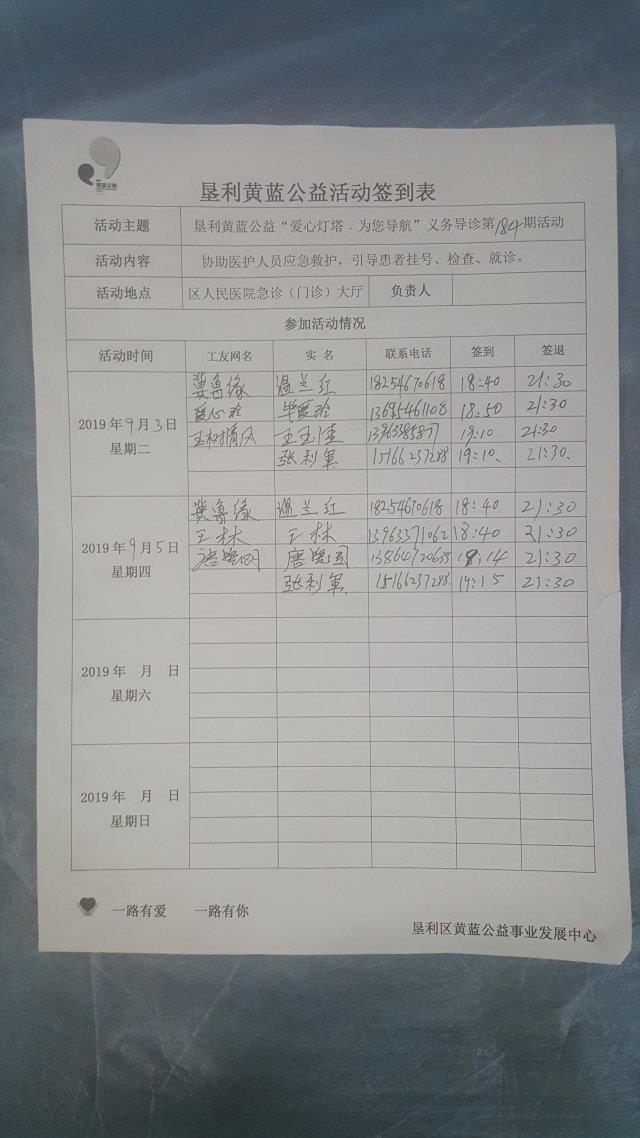 黄蓝公益
垦利黄蓝公益活动签到表
活动主题 垦利黄蓝公益“爱心灯塔．为您导航”义务导诊第184期活动
活动内容 协助医护人员应急救护，引导患者挂号、检查、就诊。
活动地点 区人民医院急诊（门诊）大厅 负责人
参加活动情况
活动时间 工友网名 实 名 联系电话 签到 签退
2019年9月3日
星期二
冀鲁缘 温兰红 18254670618 18:40 21:30
18:50 21:30
王玉佳 19:10 21:30
张利军 15166237288 19:10. 21:30.
2019年9月5日
星期四
冀鲁缘 温兰红 18254670618 18:40 21:30
王林 王林 13963371062 18:40 21:30
21:30
张利军 15166237288. 19:15 21:30
2019年 月 日
星期六
2019年 月 日
星期日
一路有爱 一路有你
垦利区黄蓝公益事业发展中心